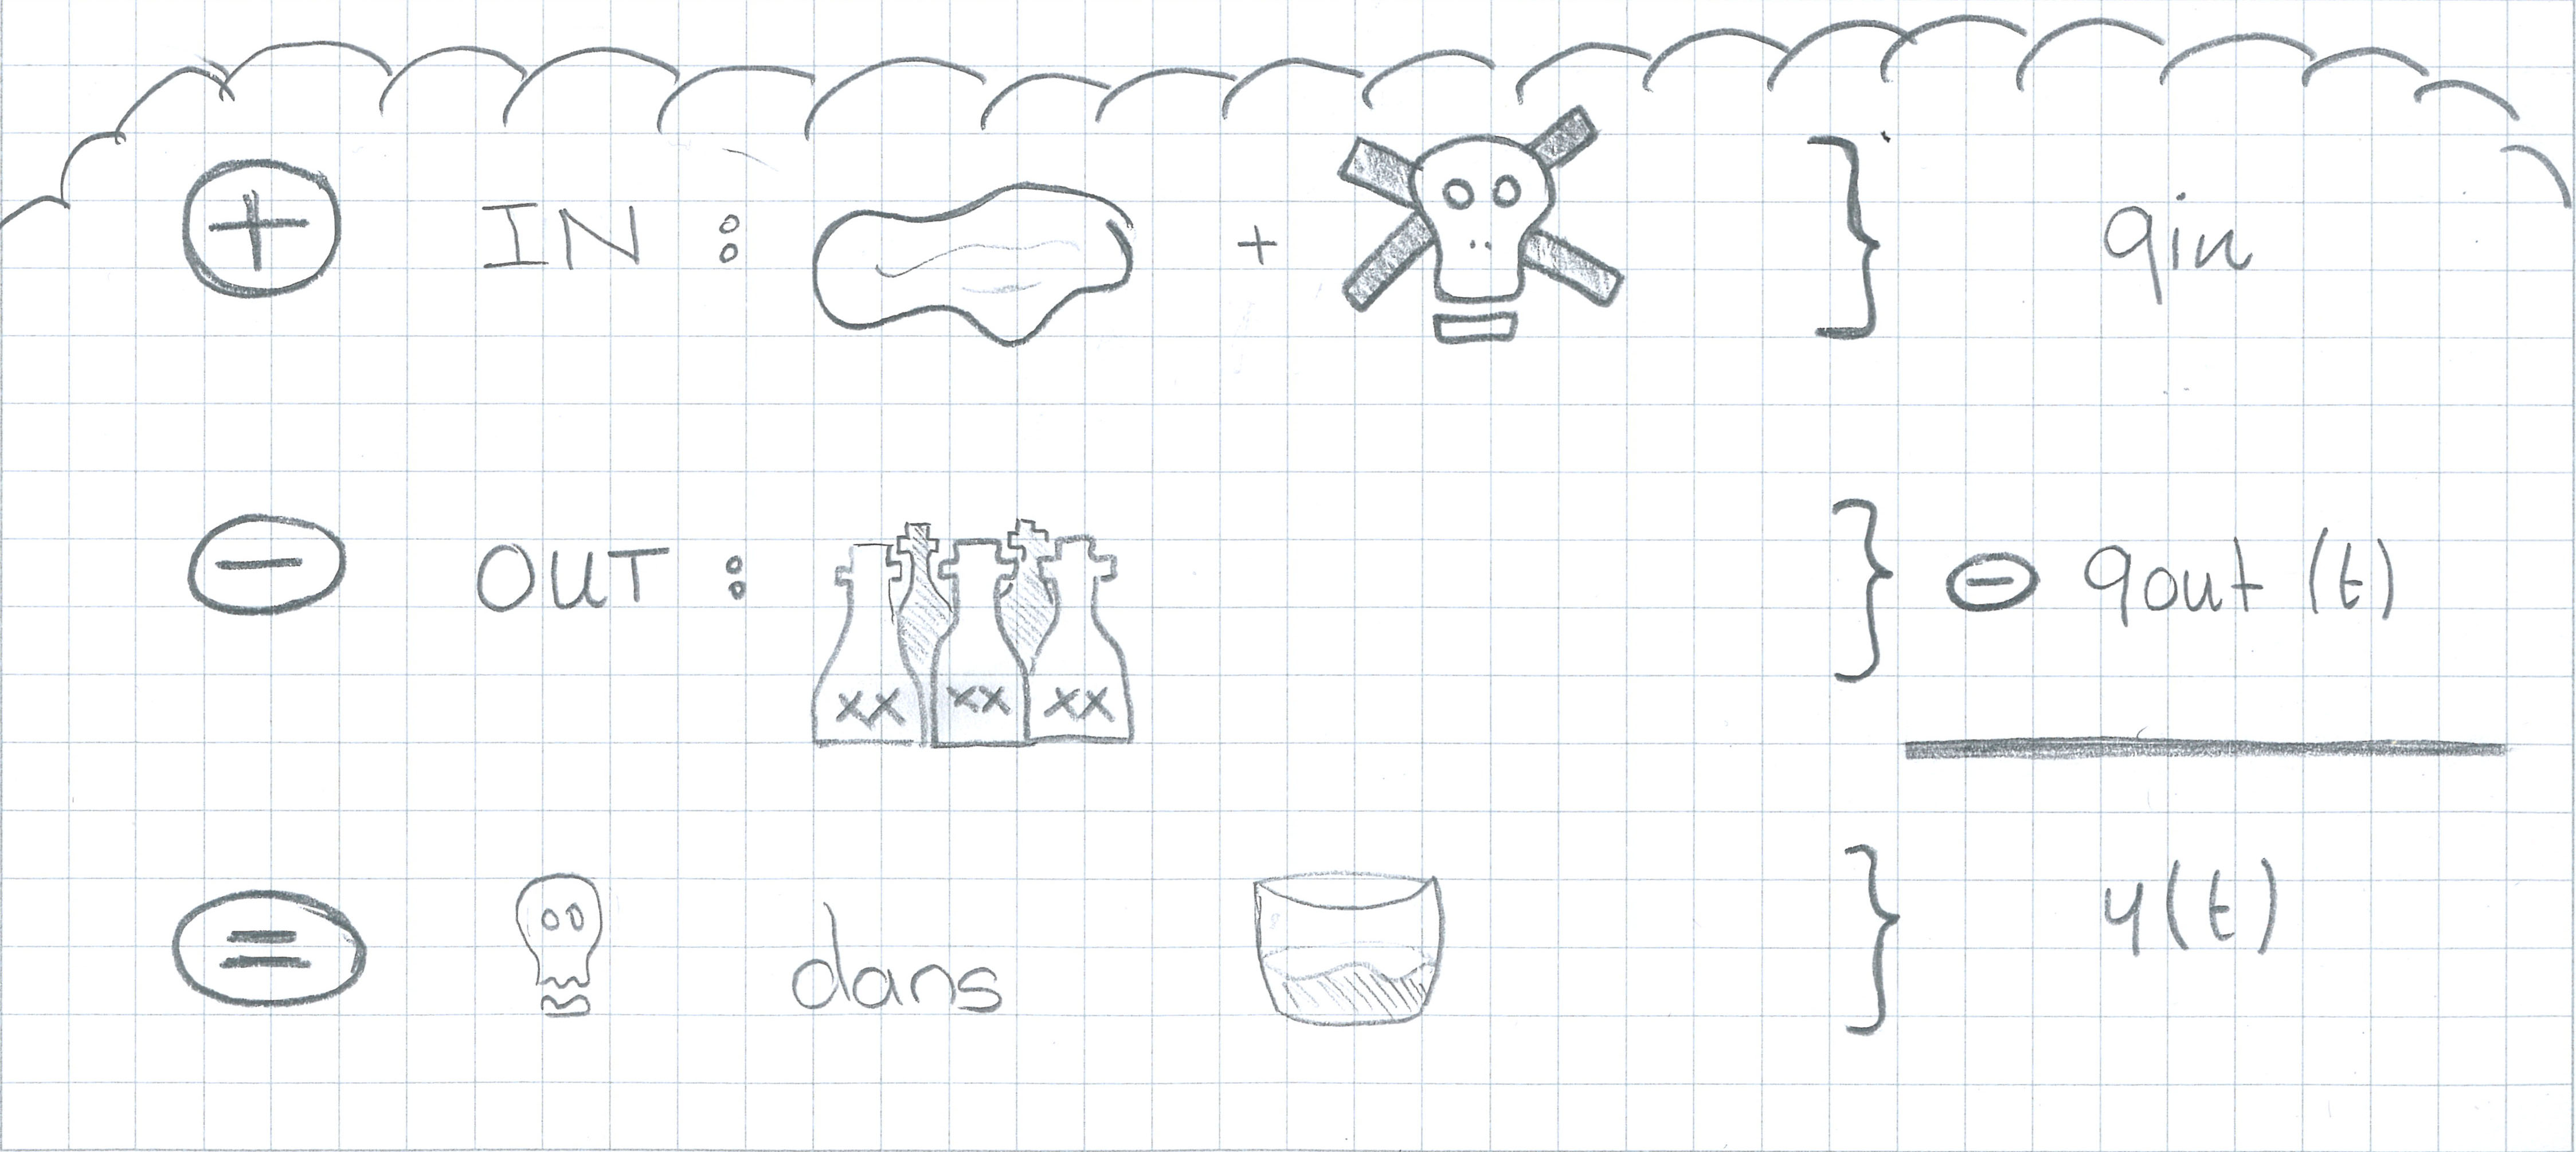 + IN : + } qin
- OUT : xx xx xx } - qout (t)
= dans } y(t)